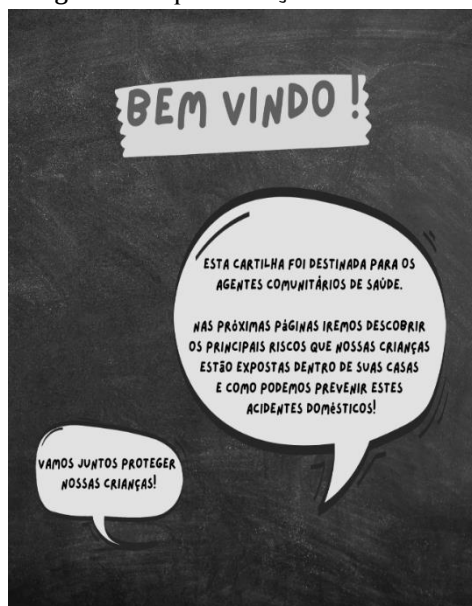 BEM VINDO !
ESTA CARTILHA FOI DESTINADA PARA OS
AGENTES COMUNITÁRIOS DE SAÚDE.
NAS PRÓXIMAS PÁGINAS IREMOS DESCOBRIR
OS PRINCIPAIS RISCOS QUE NOSSAS CRIANÇAS
ESTÃO EXPOSTAS DENTRO DE SUAS CASAS
E COMO PODEMOS PREVENIR ESTES
ACIDENTES DOMÉSTICOS!
VAMOS JUNTOS PROTEGER
NOSSAS CRIANÇAS!